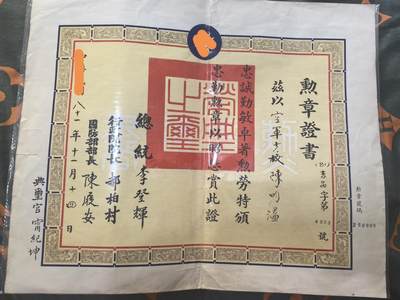 勳章證書
字第
號
勳章號碼
茲以空軍少校陳明溫
忠誠勤敏卓著勳勞特頒
忠勤勳章以昭懋賞此證
榮典之璽
總統李登輝
行政院院長郝柏村
國防部部長陳履安
八十一年十一月十四日
典璽官甯紀坤